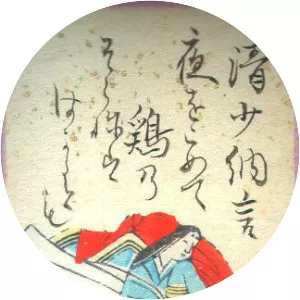 清少納言
夜をこめて
鶏乃
そらねは
はかるとも